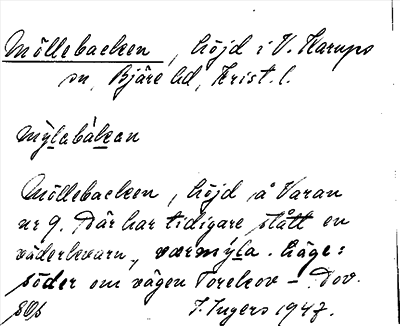 Möllebacken, höjd i V. Karups
sn, Bjäre hd, Krist. l.
mýlabákan
Möllebacken, höjd å Varan
nr 9. Där har tidigare stått en
väderkvarn,værmýla. Läge:
söder om vägen Torekov – Dov.
I. Ingers 1947.